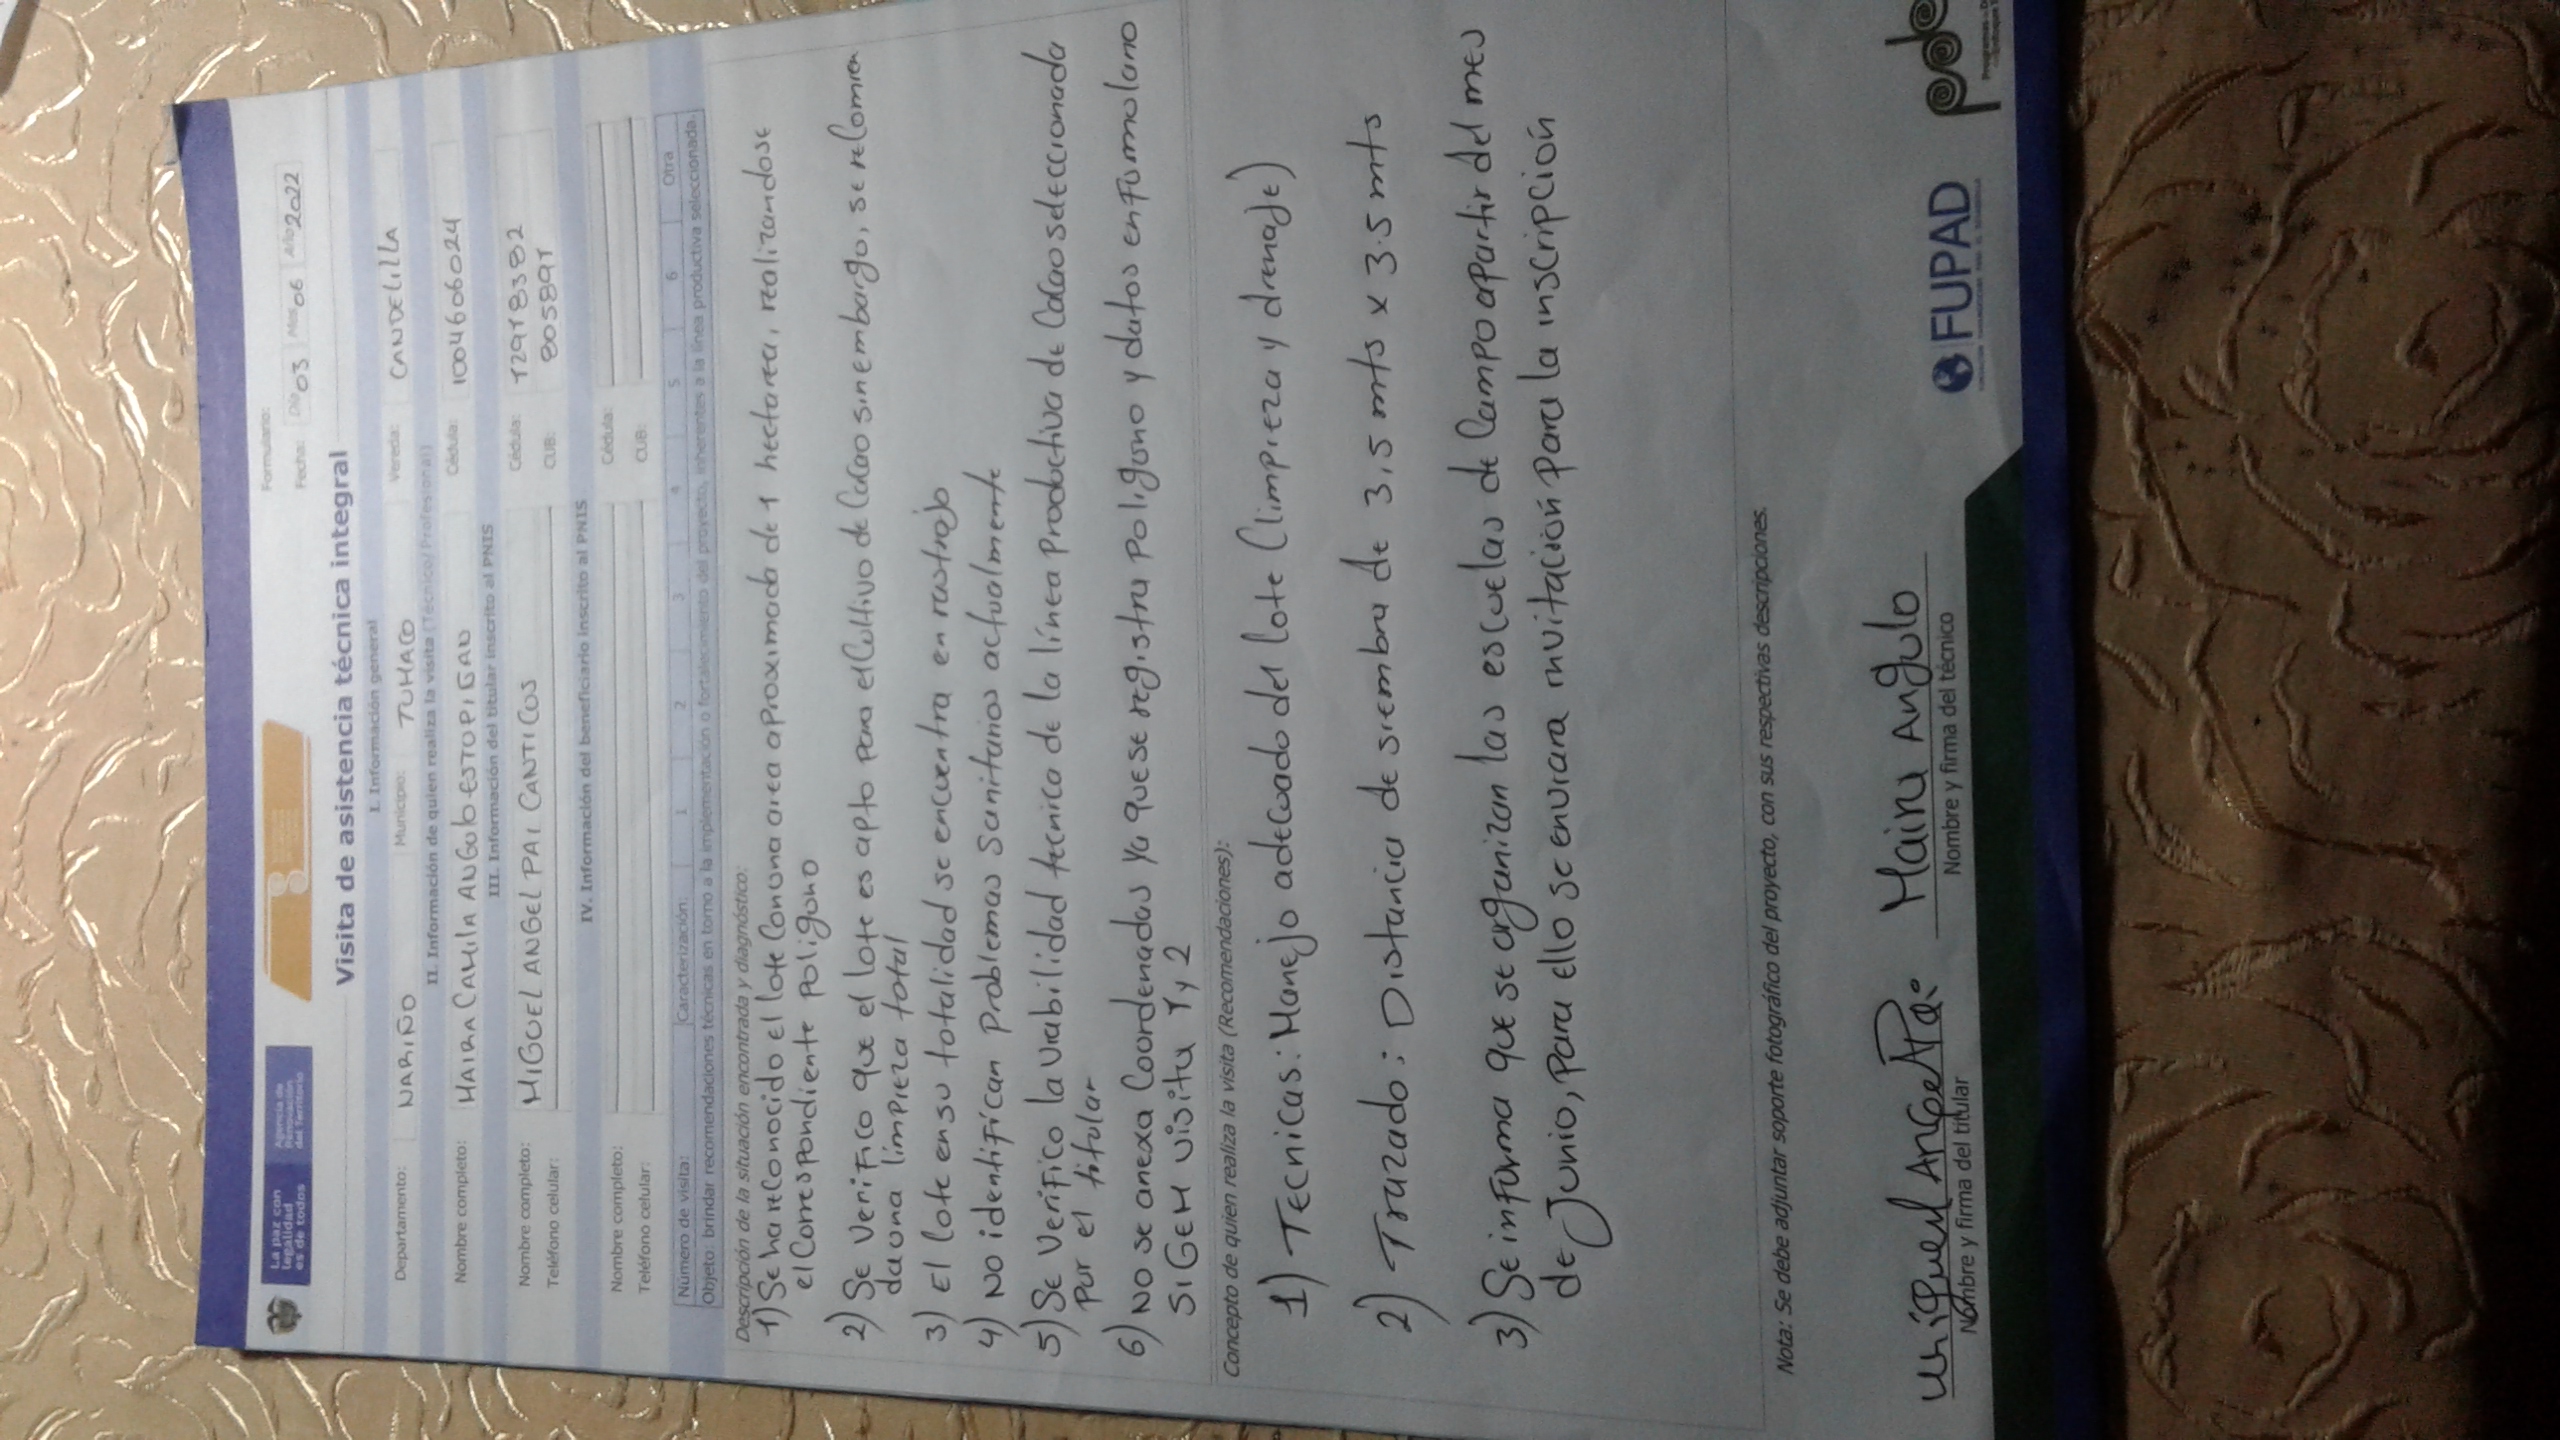 La paz con
legalidad
es de todos
Agencia de
Renovación
del Territorio
Formulario:
Fecha: Día 03 Mes 06 Año 2022
Visita de asistencia técnica integral
I. Información general
Departamento: NARIÑO Municipio: TUMACO Vereda: CANDELILLA
II. Información de quien realiza la visita (Técnico/ Profesional)
Nombre completo: MAIRA CAMILA ANGULO ESTOPIÑAN Cédula: 1004606024
III. Información del titular inscrito al PNIS
Nombre completo: MIGUEL ANGEL PAI CANTICUS Cédula:
Teléfono celular: CUB:
IV. Información del beneficiario inscrito al PNIS
Nombre completo: Cédula:
Teléfono celular: CUB:
Número de visita: Caracterización: 1 2 3 4 5 6 Otra
Objeto: brindar recomendaciones técnicas en torno a la implementación o fortalecimiento del proyecto, inherentes a la línea productiva seleccionada.
Descripción de la situación encontrada y diagnóstico:
1) Se ha reconocido el lote con una area aproximada de 1 hectarea, realizandose
el correspondiente poligono
2) Se verifico que el lote es apto para el cultivo de cacao sin embargo, se recomien
da una limpieza total
3) El lote en su totalidad se encuentra en rastrojo
4) No identifican problemas sanitarios actualmente
5) Se verifico la viabilidad tecnica de la línea productiva de cacao seleccionada
por el titular
6) No se anexa coordenadas ya que se registra poligono y datos en formulario
SIGEM visita 1 y 2
Concepto de quien realiza la visita (Recomendaciones):
1) Tecnicas: Manejo adecuado del lote (limpieza y drenaje)
2) Trazado: Distancia de siembra de 3,5 mts x 3.5 mts
3) Se informa que se organizan las escuelas de campo apartir del mes
de Junio, para ello se enviara invitación para la inscripción
Nota: Se debe adjuntar soporte fotográfico del proyecto, con sus respectivas descripciones.
Miguel Angel Pai Maira Angulo
Nombre y firma del titular Nombre y firma del técnico
FUPAD